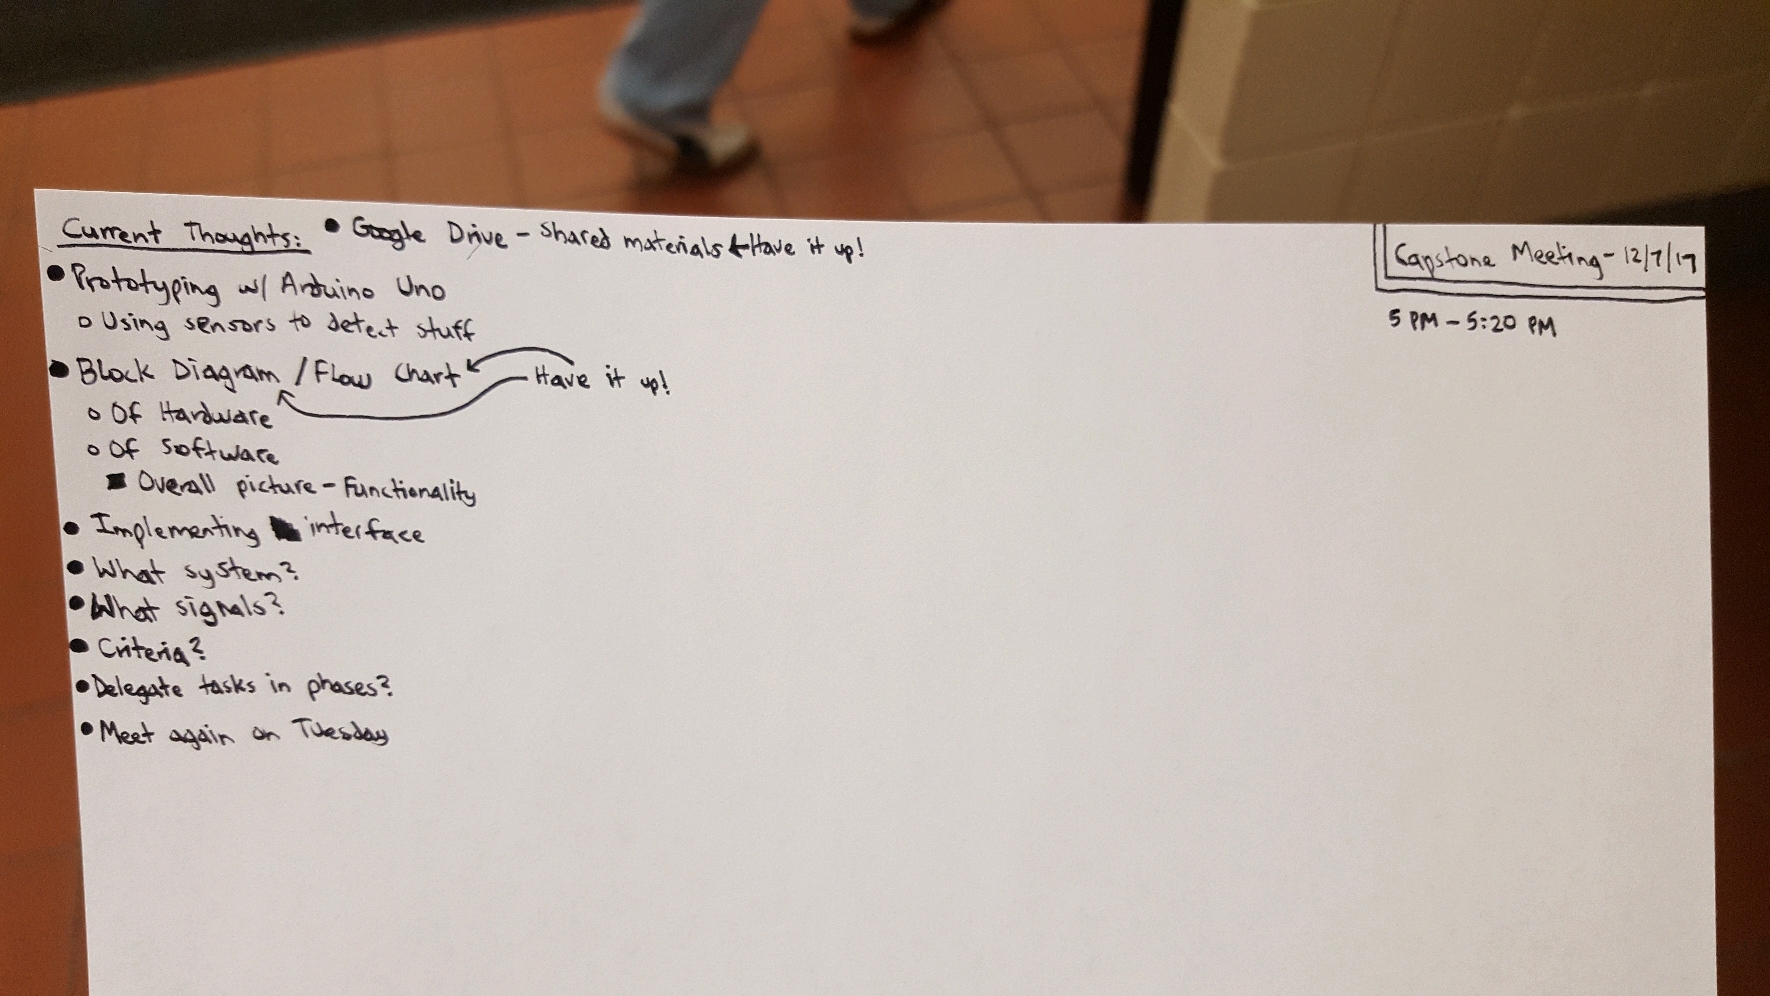 Current Thoughts: • Google Drive - Shared materials ← Have it up!
Capstone Meeting - 12/7/17
5 PM - 5:20 PM
• Prototyping w/ Arduino Uno
○ Using sensors to detect stuff
• Block Diagram / Flow Chart ← Have it up!
○ Of Hardware
○ Of Software
■ Overall picture - Functionality
• Implementing interface
• What system?
• What signals?
• Criteria?
• Delegate tasks in phases?
• Meet again on Tuesday